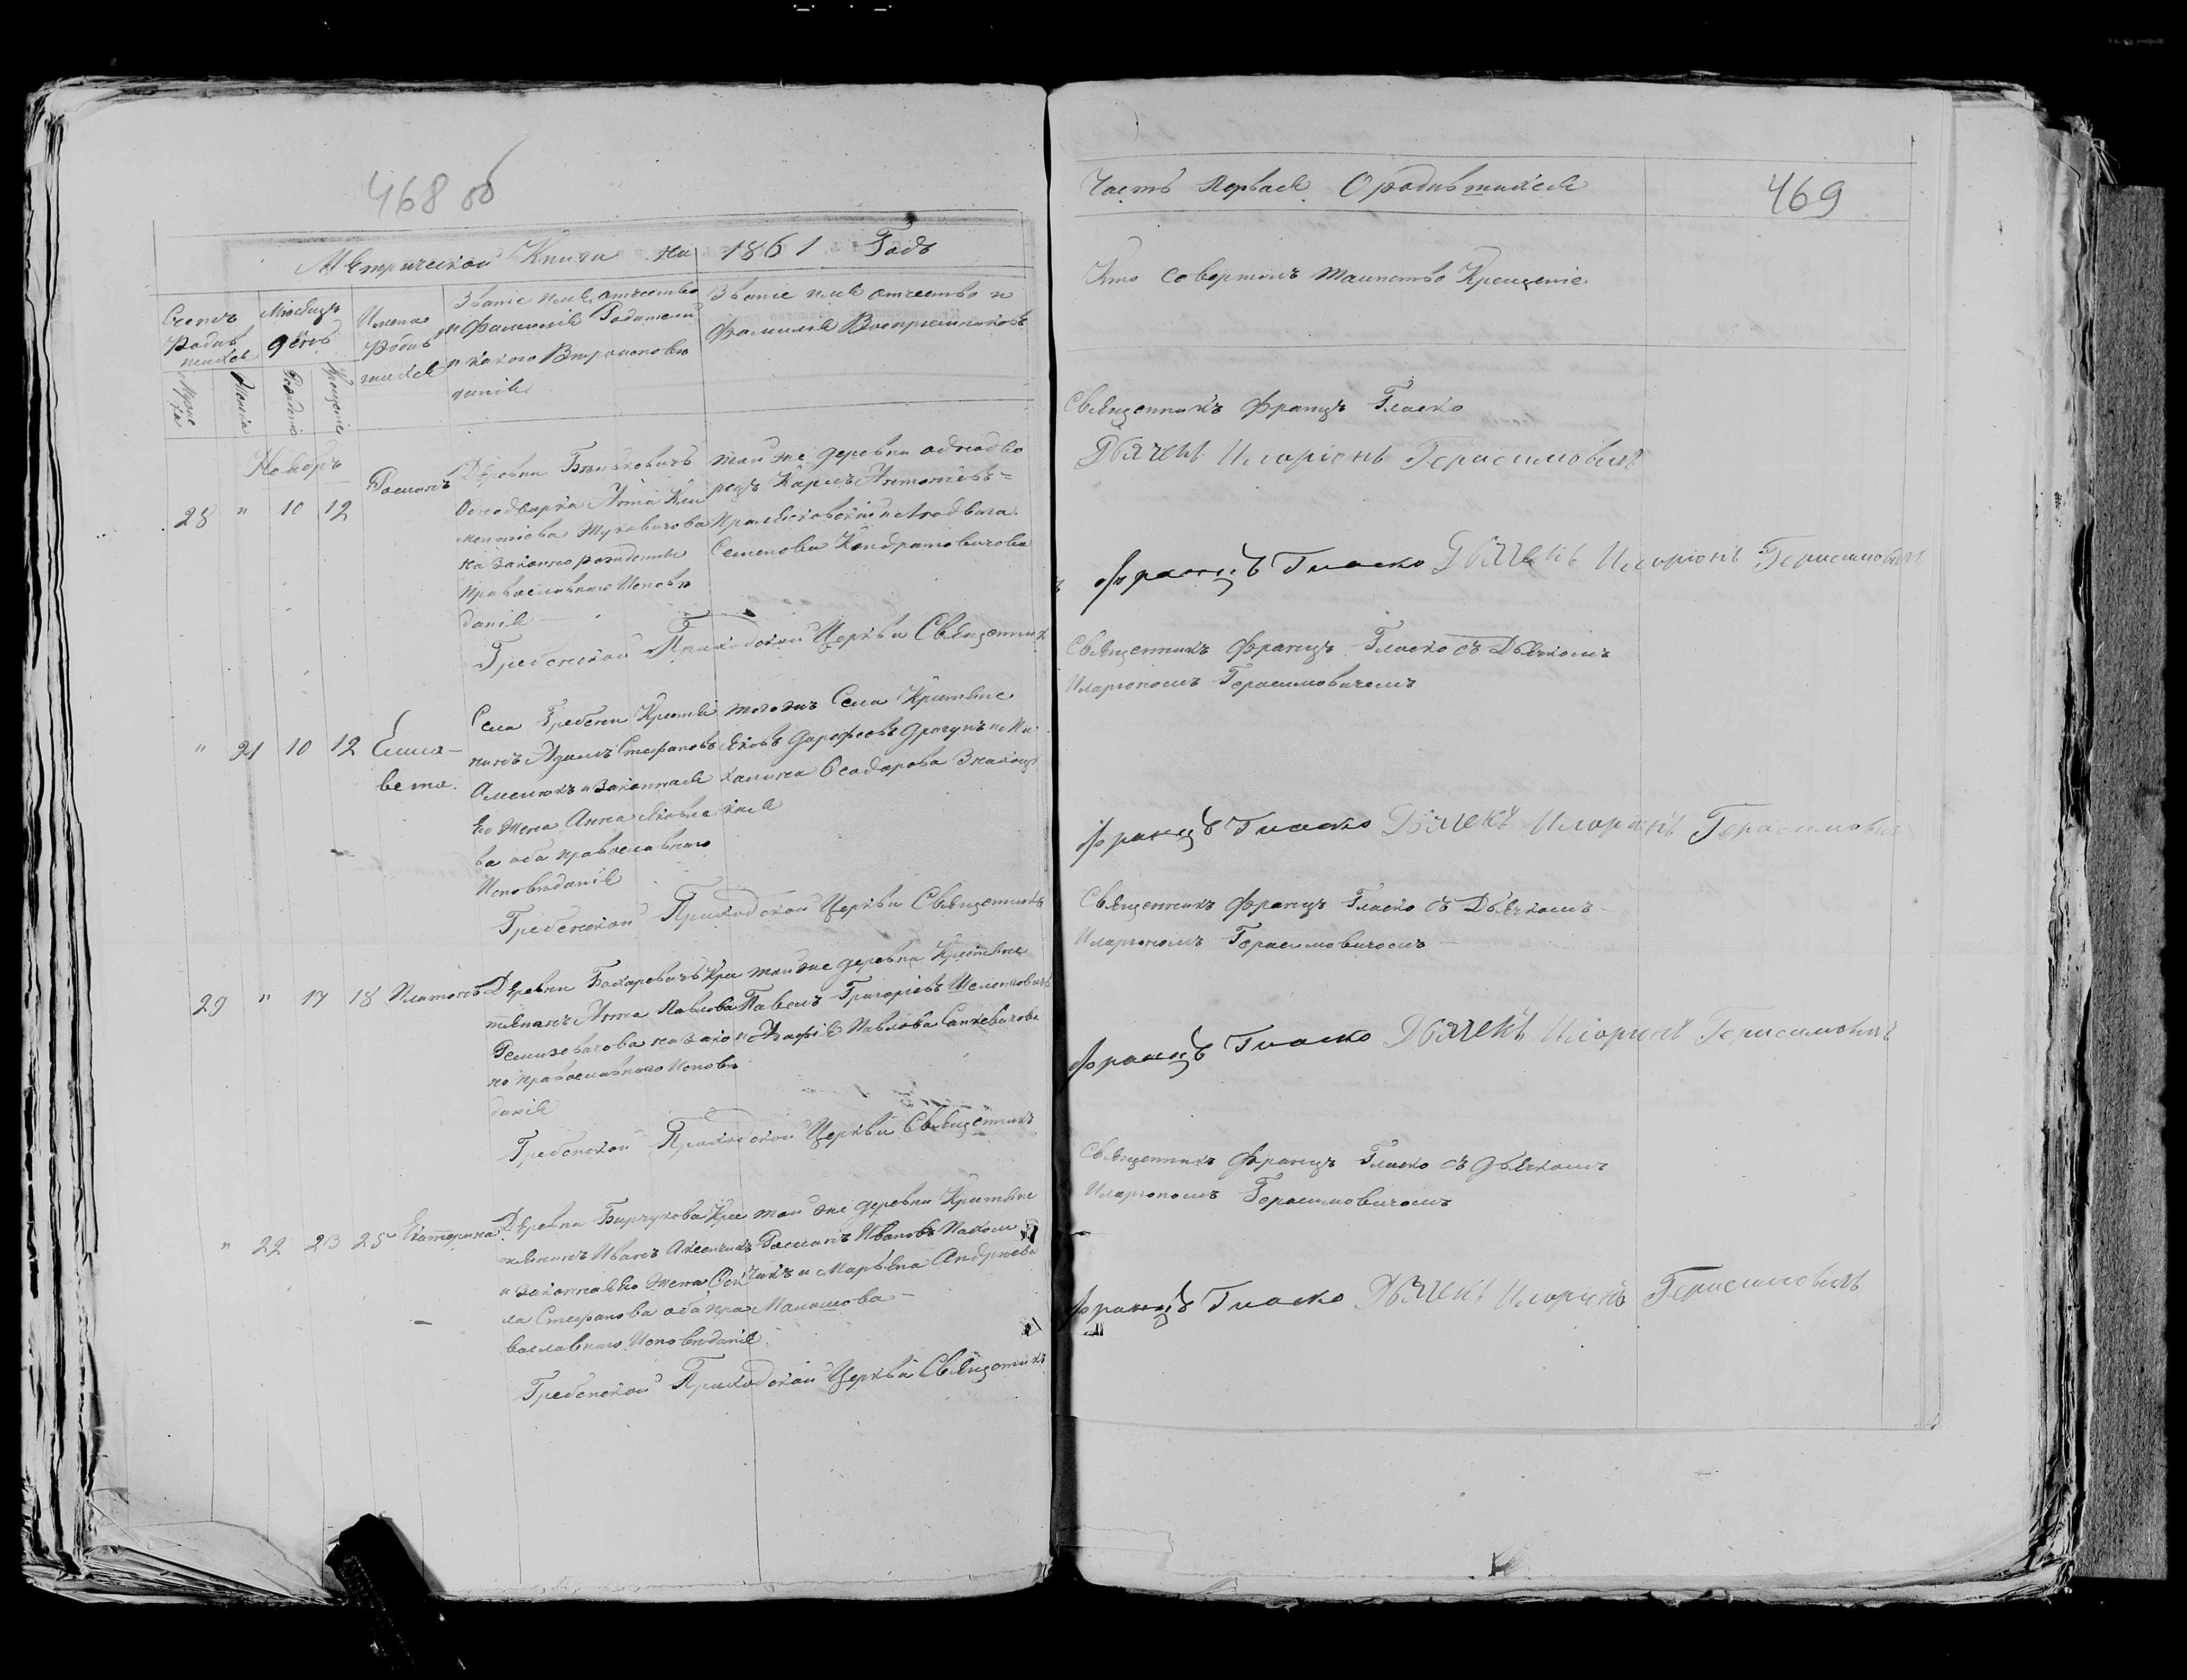 468 об
Метрической Книги на 1861 Годъ
Счетъ Родив шихся
Мѣсяцъ день
Имена Родив шихся
Званіе имя, отчество
и фамилія Родителей
и какого Вѣроисповѣ
данія
Званіе имя отчество и
фамилія Воспріемниковъ
Муже ска
Женска
Рожденіе
Крещеніе
Ноябрь
28 " 10 12
Романъ
Деревни
Однодворка Анна Кли
ментіева Жуковичова
не законно рожденны
Православнаго Исповѣ
данія
той же деревни однодво
рецъ Карлъ Антоніевъ
и Людвига
Семенова Кондратовичова
Гребенской Приходской Церкви Священникъ
" 21 10 12
Елиса-
вета.
Села Гребени Крестья
нинъ Адамъ Стефановъ
и законная
Его Жена Анна Яковле
ва оба православнаго
Исповѣданія
тогожъ Села Крестьяне
Яковъ Дорофеевъ Драгунъ и Ма
Ѳеодорова
кая
Гребенской Приходской Церкви Священникъ
29 " 17 18
Платонъ
Деревни Бахаревичъ Кре
стьянка Анна Павлова
Ремизовичова незакон
но православнаго Исповѣ
данія
той же деревни Крестьяне
Павелъ Григоріевъ
и Агафія Павлова
Гребенской Приходской Церкви Священникъ
" 22 23 25
Екатерина
Деревни Бирчукова Кре
стьянинъ Иванъ
и законная Его Жена
Стефанова оба пра
вославнаго Исповѣданія
той же деревни Крестьяне
Романъ Ивановъ
и Марьяна Андреева
Малашова
Гребенской Приходской Церкви Священникъ
Часть Первая О родившихся
469
Кто совершалъ таинство Крещенія
Священникъ Францъ Гласко
Дьячекъ Иларіонъ Герасимовичъ
Францъ Гласко Дьячекъ Иларіонъ Герасимовичъ
Священникъ Францъ Гласко съ Дьячкомъ
Иларіономъ Герасимовичемъ
Францъ Гласко Дьячекъ Иларіонъ Герасимовичъ
Священникъ Францъ Гласко съ Дьячкомъ
Иларіономъ Герасимовичомъ
Францъ Гласко Дьячекъ Иларіонъ Герасимовичъ
Священникъ Францъ Гласко съ дьячкомъ
Иларіономъ Герасимовичомъ
Францъ Гласко Дьячекъ Иларіонъ Герасимовичъ